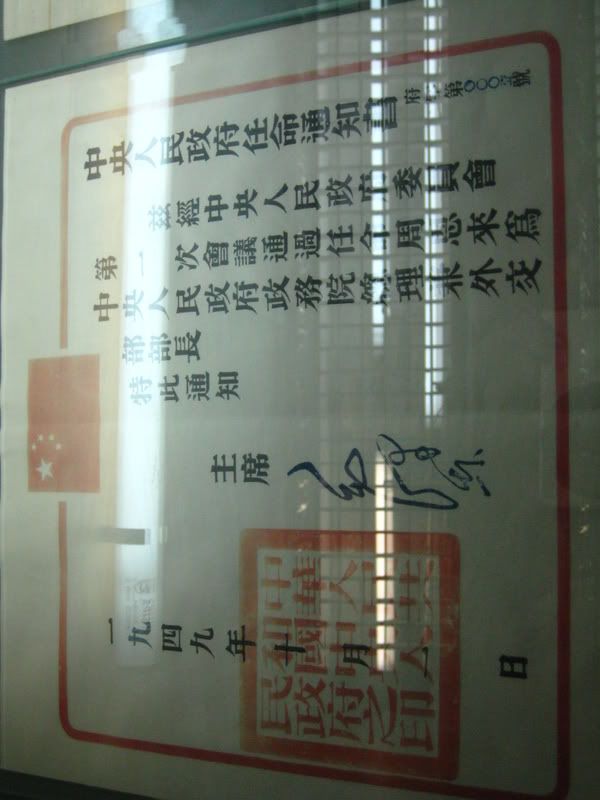 中央人民政府任命通知書
府字第〇〇〇號
茲經中央人民政府委員會
第一次會議通過任命周恩來爲
中央人民政府政務院總理兼外交
部部長
特此通知
主席 毛澤東
一九四九年十月一日
中華人民共
和國中央人
民政府之印